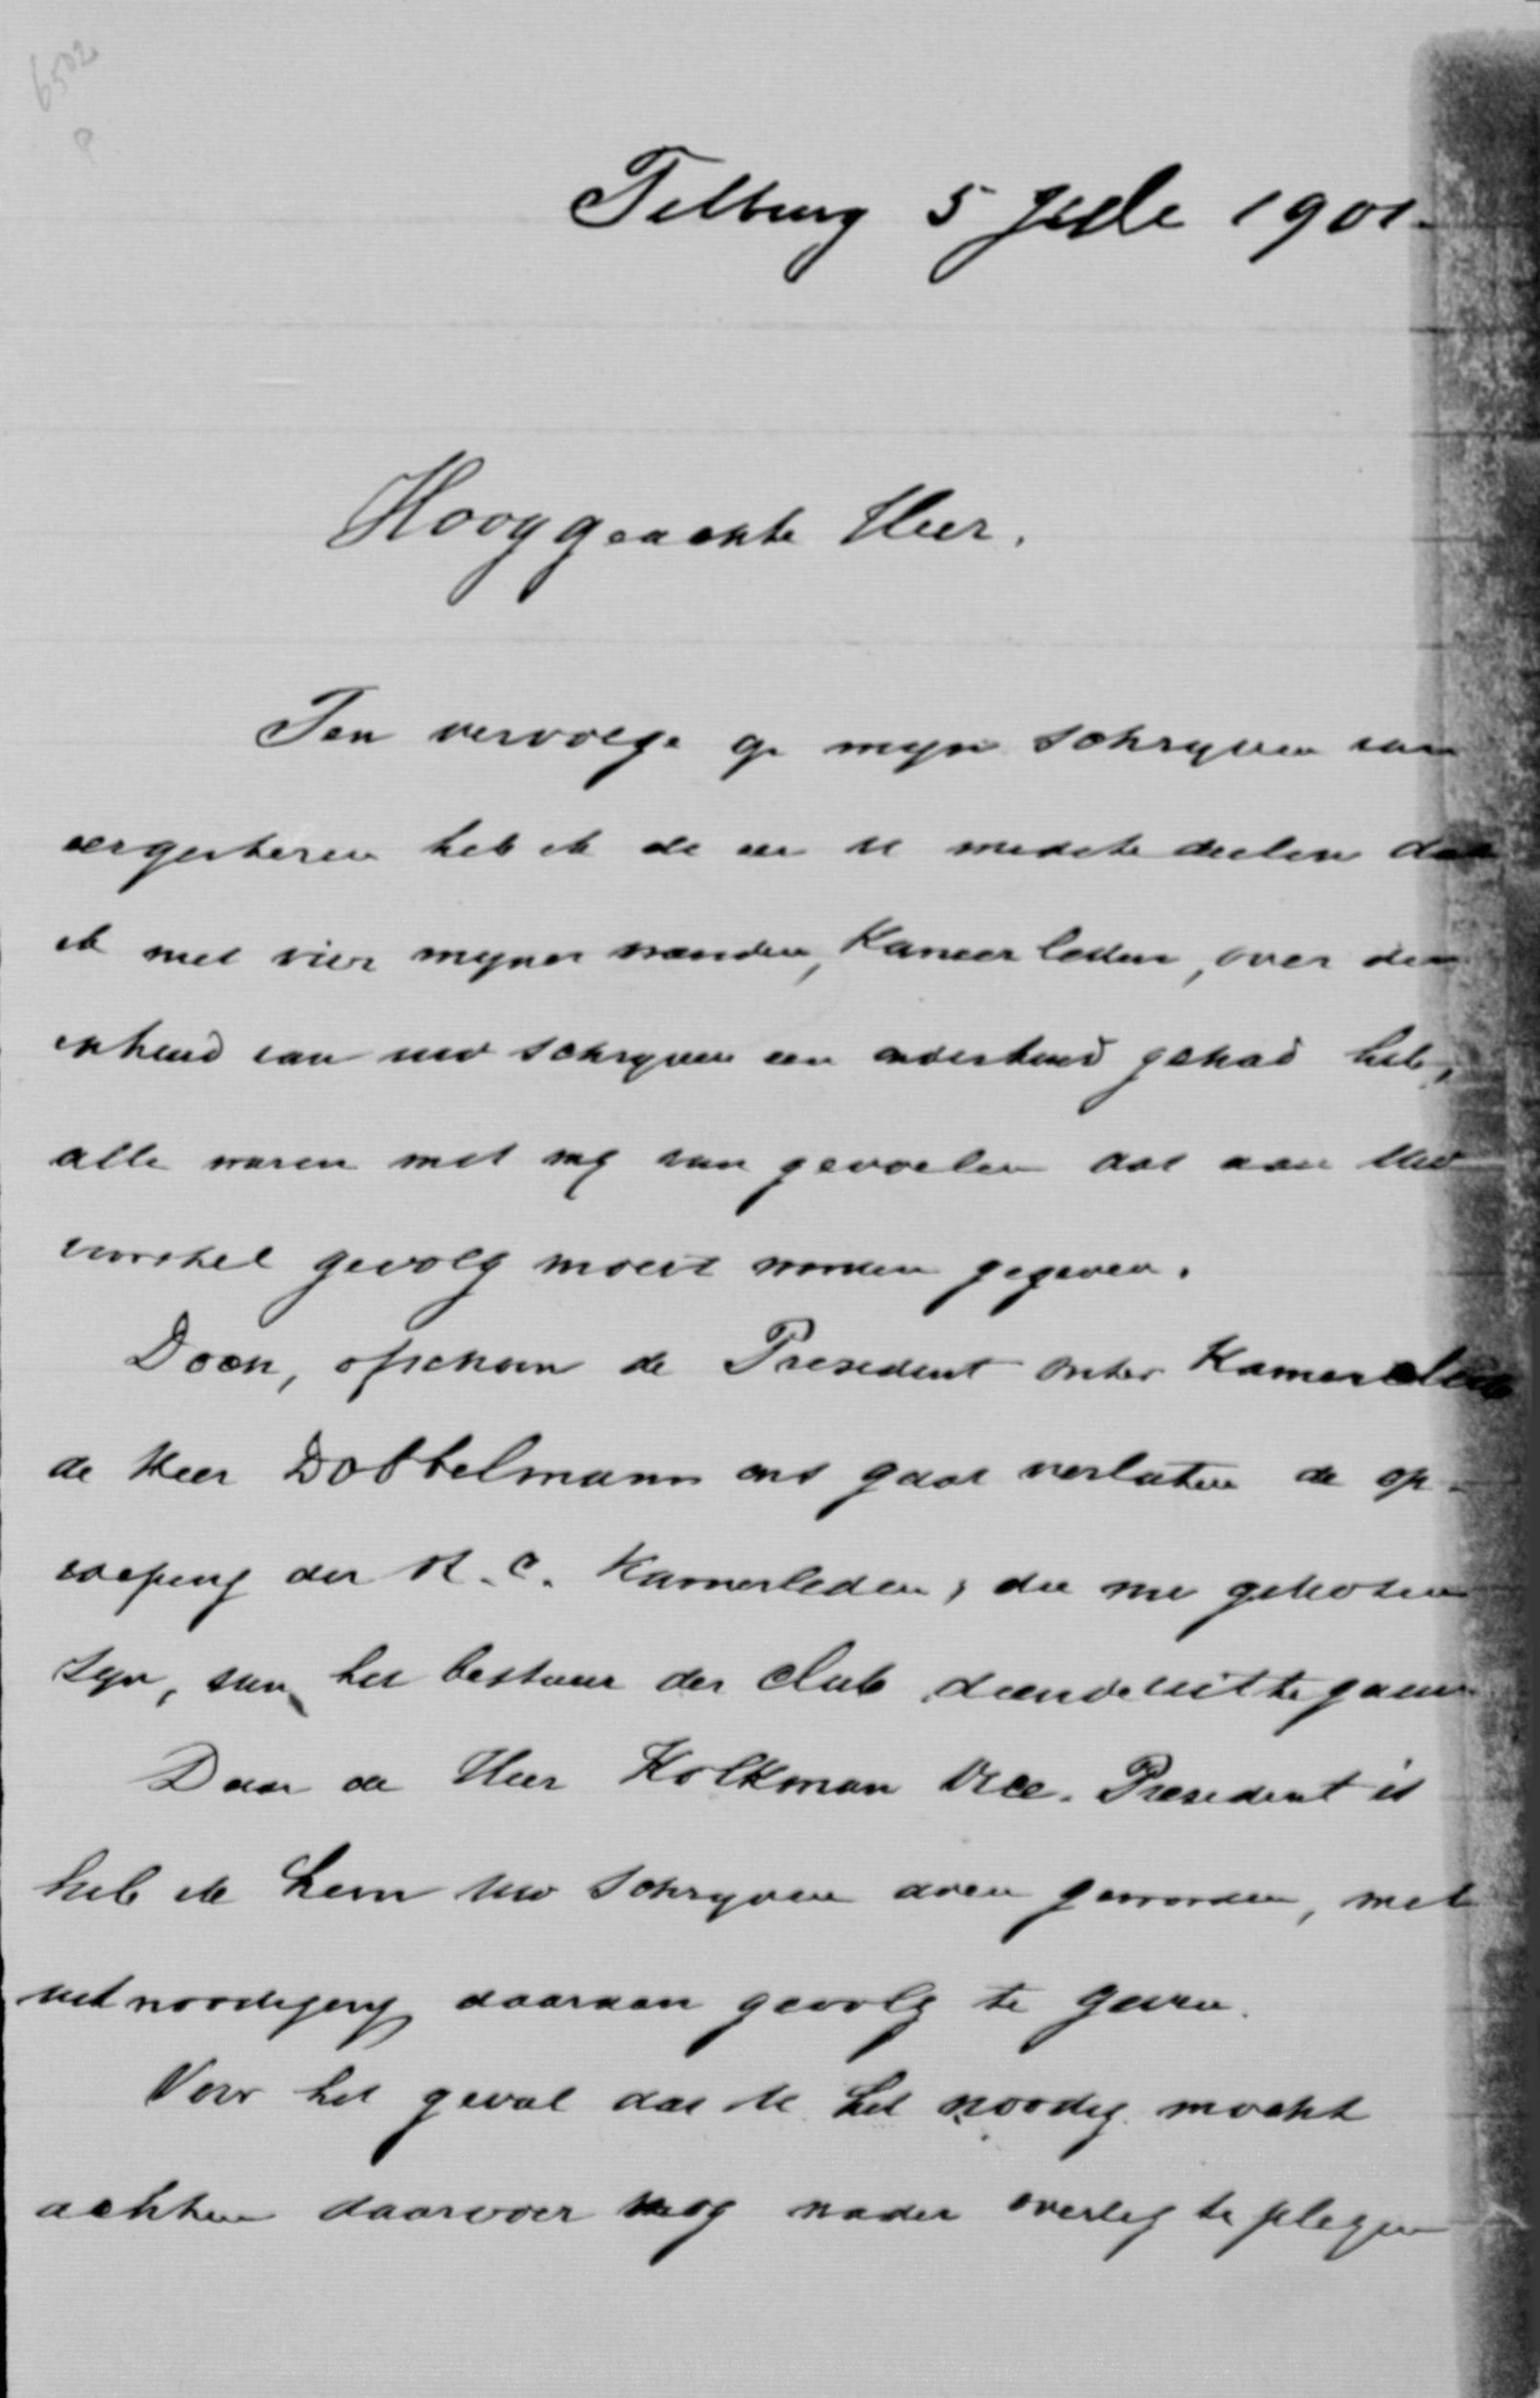 6502
P
Tilburg 5 Julie 1901.
Hooggeachte Heer.
Ten vervolge op mijn schrijven van
eergisteren heb ik de eer U mede te deelen dat
ik met vier mijner vrienden, Kamerleden, over den
inhoud van uw schrijven een onderhoud gehad heb,
alle waren met mij van gevoelen dat aan Uw
voorstel gevolg moest worden gegeven.
Doch, ofschoon de President onzer Kamerclub
de Heer Dobbelmann ons gaat verlaten de op-
roeping der R.C. Kamerleden, die nu gekozen
zijn, van het bestuur der club diende uit te gaan
Daar de Heer Kolkman Vice-President is
heb ik hem Uw schrijven doen geworden, met
uitnoodiging daaraan gevolg te geven.
Voor het geval dat U het noodig mocht
achten daarover nog nader overleg te plegen